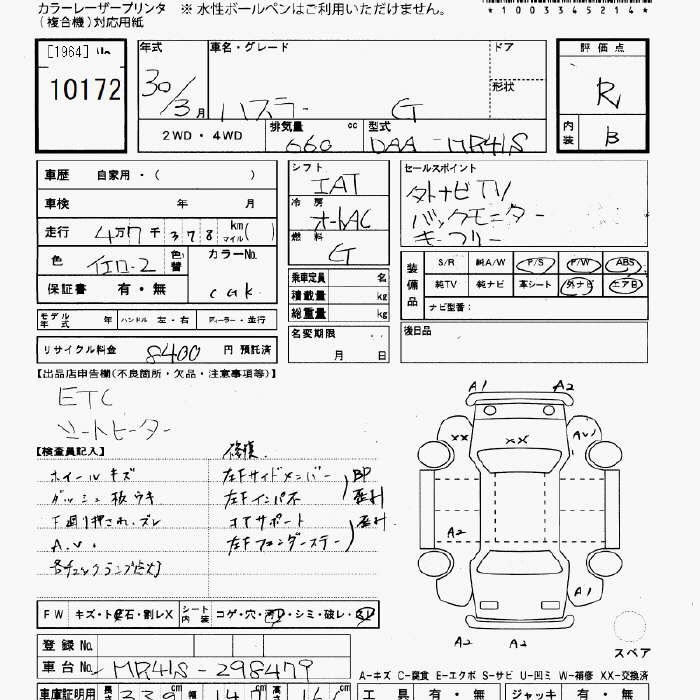 カラーレーザープリンタ ※ 水性ボールペンはご利用いただけません。
(複合機)対応用紙
*100335214*
[1964]
10172
年式 車名・グレード ドア 評価点
30/3月 ハスラー G 形状 R
2WD・4WD 排気量 660 cc 型式 DAA-MR41S 内装 B
車歴 自家用・( ) シフト IAT セールスポイント
車検 年 月 冷房 オートAC 外ナビTV
走行 4万7千378 km マイル( ) 燃料 G バックモニター
キーフリー
色 イエロ-2 色替 カラーNo. C6K
保証書 有・無
乗車定員 名
積載量 kg
総重量 kg
装備品 S/R 純A/W P/S P/W ABS
純TV 純ナビ 革シート 外ナビ エアB
ナビ型番:
モデル年式 年 ハンドル 左・右 ディーラー・並行
名変期限 月 日
後日品
リサイクル料金 8400 円 預託済
【出品店申告欄(不良箇所・欠品・注意事項等)】
ETC
シートヒーター
A1 A2
【検査員記入】 修復
ホイールキズ 左Fサイドメンバー BP
ダッシュ板ウキ 左Fインパネ
下廻り押され、ズレ コアサポート
A.U. 左Fフェンダーステー
XX XX AU
A2
A1
A2 A2
FW キズ・ト石・割レX シート内装 コゲ・穴・ ・シミ・破レ・スレ
スペア
登録No.
車台No. MR41S-298479
A-キズ C-腐食 E-エクボ S-サビ U-凹ミ W-補修 XX-交換済
車庫証明用 長さ 339 cm 幅 147 cm 高 cm 工具 有・無 ジャッキ 有・無